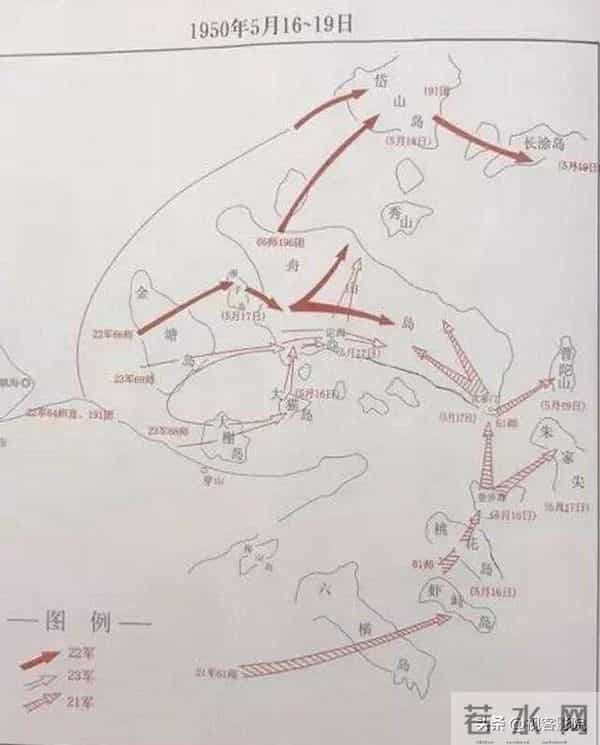 1950年5月16~19日
岱
山
岛
191团
(5月18日)
长涂岛
(5月19日)
秀
山
66师196团
舟
岛
金
塘
岛
(5月17日)
22军66师
定海
(5月17日)
23军69师
大
猫
岛
(5月16日)
镇海
22军64师直、191团
23军68师
大
榭
岛
穿山
普
陀
山
(5月19日)
(5月17日)
61师
朱
家
尖
(5月17日)
登步岛
(5月16日)
桃
花
岛
61师
(5月16日)
虾
峙
岛
梅山岛
六
横
岛
21军61师
图 例
22军
23军
21军
头条
若水网